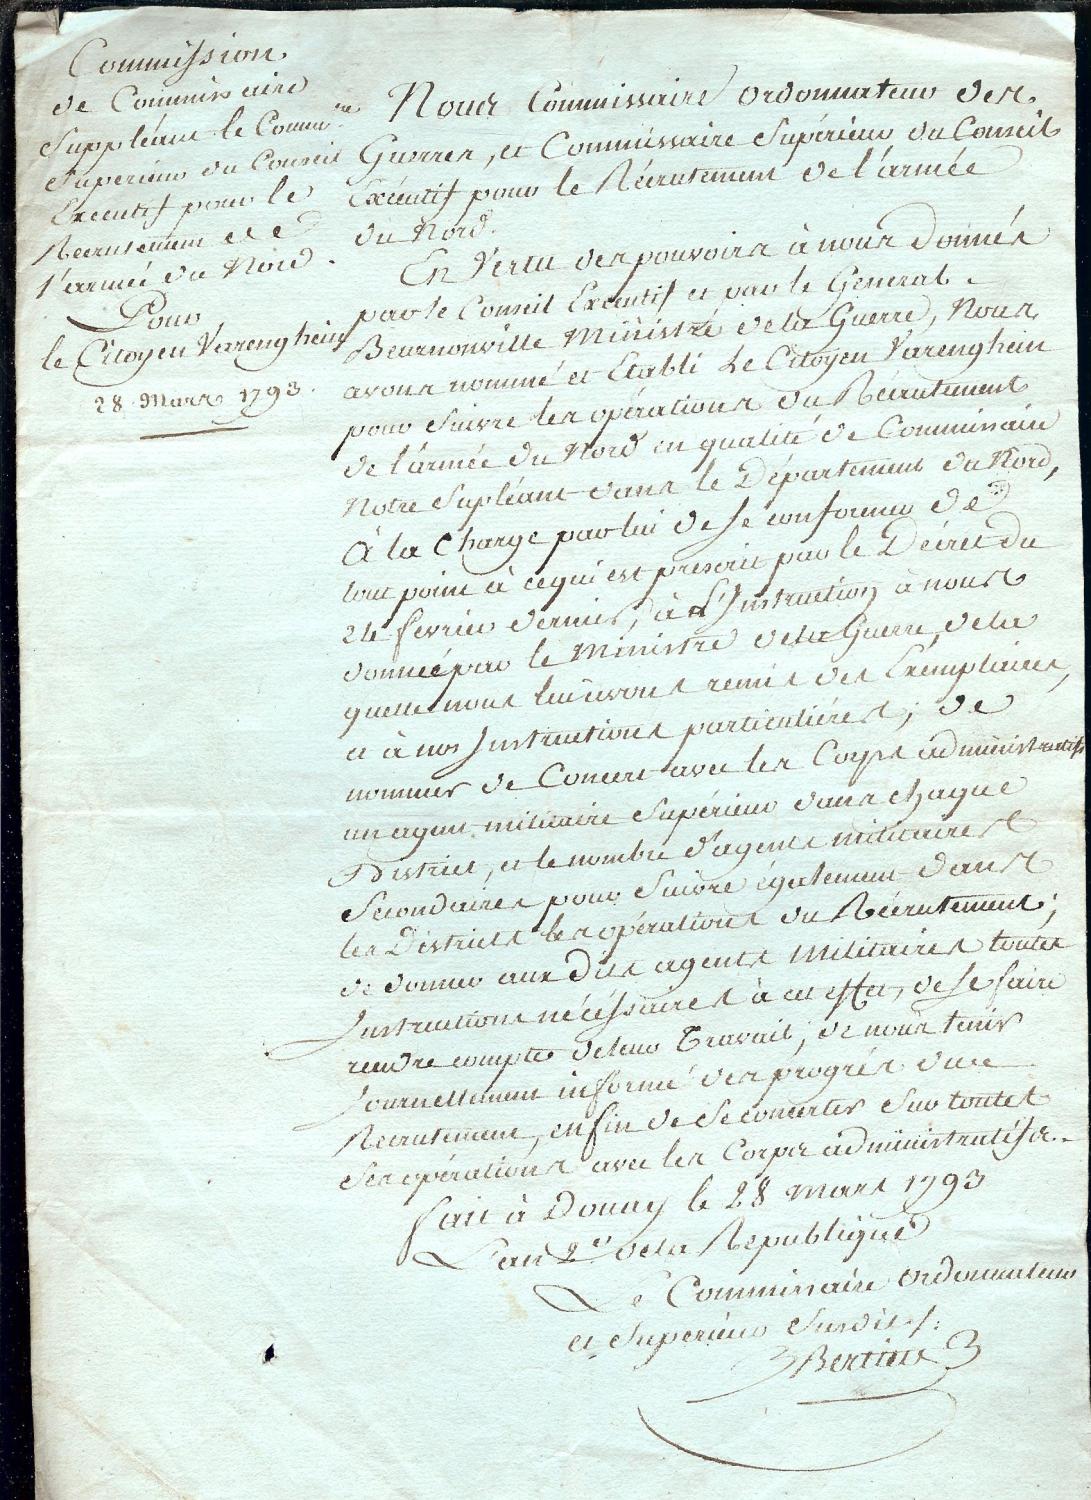 Commission
de Commissaire
Suppléant le Comm.re
Supérieur du Conseil
Exécutif pour le
Recrutement de
l'armée du Nord.
Pour
le Citoyen Varenghein
28 Mars 1793.
Nous Commissaire ordonnateur des
Guerres, et Commissaire Supérieur du Conseil
Exécutif pour le Récrutement de l'armée
du Nord.
En Vertu des pouvoirs à nous donnés
par le Conseil Executif et par le General
Beurnonville Ministre de la Guerre, Nous
avons nommé et Etabli Le Citoyen Varenghein
pour Suivre les opérations du Récrutement
de l'armée du Nord en qualité de Commissaire
Notre Supléant dans le Département du Nord,
à la Charge par lui de se conformer de
tout point à ce qui est prescrit par le Décret du
24 fevrier dernier, à l'Instruction à nous
donnée par le Ministre de la Guerre, de la
quelle nous lui avons remis des Exemplaires,
et à nos Instructions particulières; de
nommer de Concert avec les Corps administratifs
un agent militaire Supérieur dans chaque
District, et le nombre d'agents militaires
Secondaires pour Suivre également dans
les Districts les opérations du Récrutement;
de donner aux Dits agents Militaires toutes
Instructions nécéssaires à cet effet, de se faire
rendre compte de leur Travail; de nous tenir
Journellement informé des progrés du
Recrutement, enfin de Se concerter Sur toutes
Ses opérations avec les Corps administratifs.
fait à Douay le 28 Mars 1793
L'an 2.e de la Republique
Le Commissaire ordonnateur
et Supérieur Susdit /: